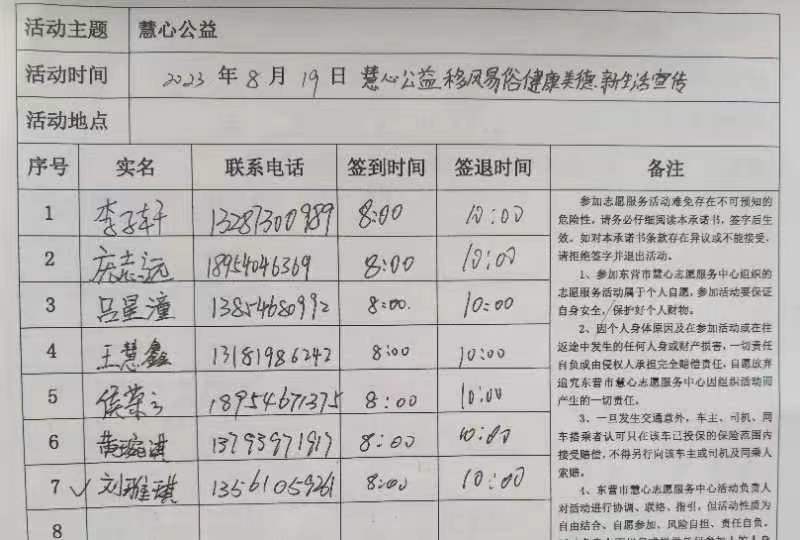 活动主题 慧心公益
活动时间 2023 年 8 月 19 日 慧心公益 移风易俗健康美德.新生活宣传
活动地点
序号 实名 联系电话 签到时间 签退时间 备注
1 李子轩 13287300989 8:00 10:00
2 庆志远 18954046369 8:00 10:00
3 吕星潼 13854680992 8:00 10:00
4 王慧鑫 13181986242 8:00 10:00
5 侯荣 18954671375 8:00 10:00
6 黄琬淇 13793971917 8:00 10:00
7 刘雅琪 13561059261 8:00 10:00
8
参加志愿服务活动难免存在不可预知的
危险性,请务必仔细阅读本承诺书,签字后生
效。如对本承诺书条款存在异议或不能接受,
请拒绝签字并退出活动。
1、参加东营市慧心志愿服务中心组织的
志愿服务活动属于个人自愿,参加活动要保证
自身安全,保护好个人财物。
2、因个人身体原因及在参加活动或在往
返途中发生的任何人身或财产损害,一切责任
自负或由侵权人承担完全赔偿责任,自愿放弃
追究东营市慧心志愿服务中心因组织活动而
产生的一切责任。
3、一旦发生交通意外,车主、司机、同
车搭乘者认可只在该车已投保的保险范围内
接受赔偿,不得另行向该车主或司机及同乘人
索赔。
4、东营市慧心志愿服务中心活动负责人
对活动进行协调、联络、指引,但活动性质为
自由结合、自愿参加、风险自担、责任自负。